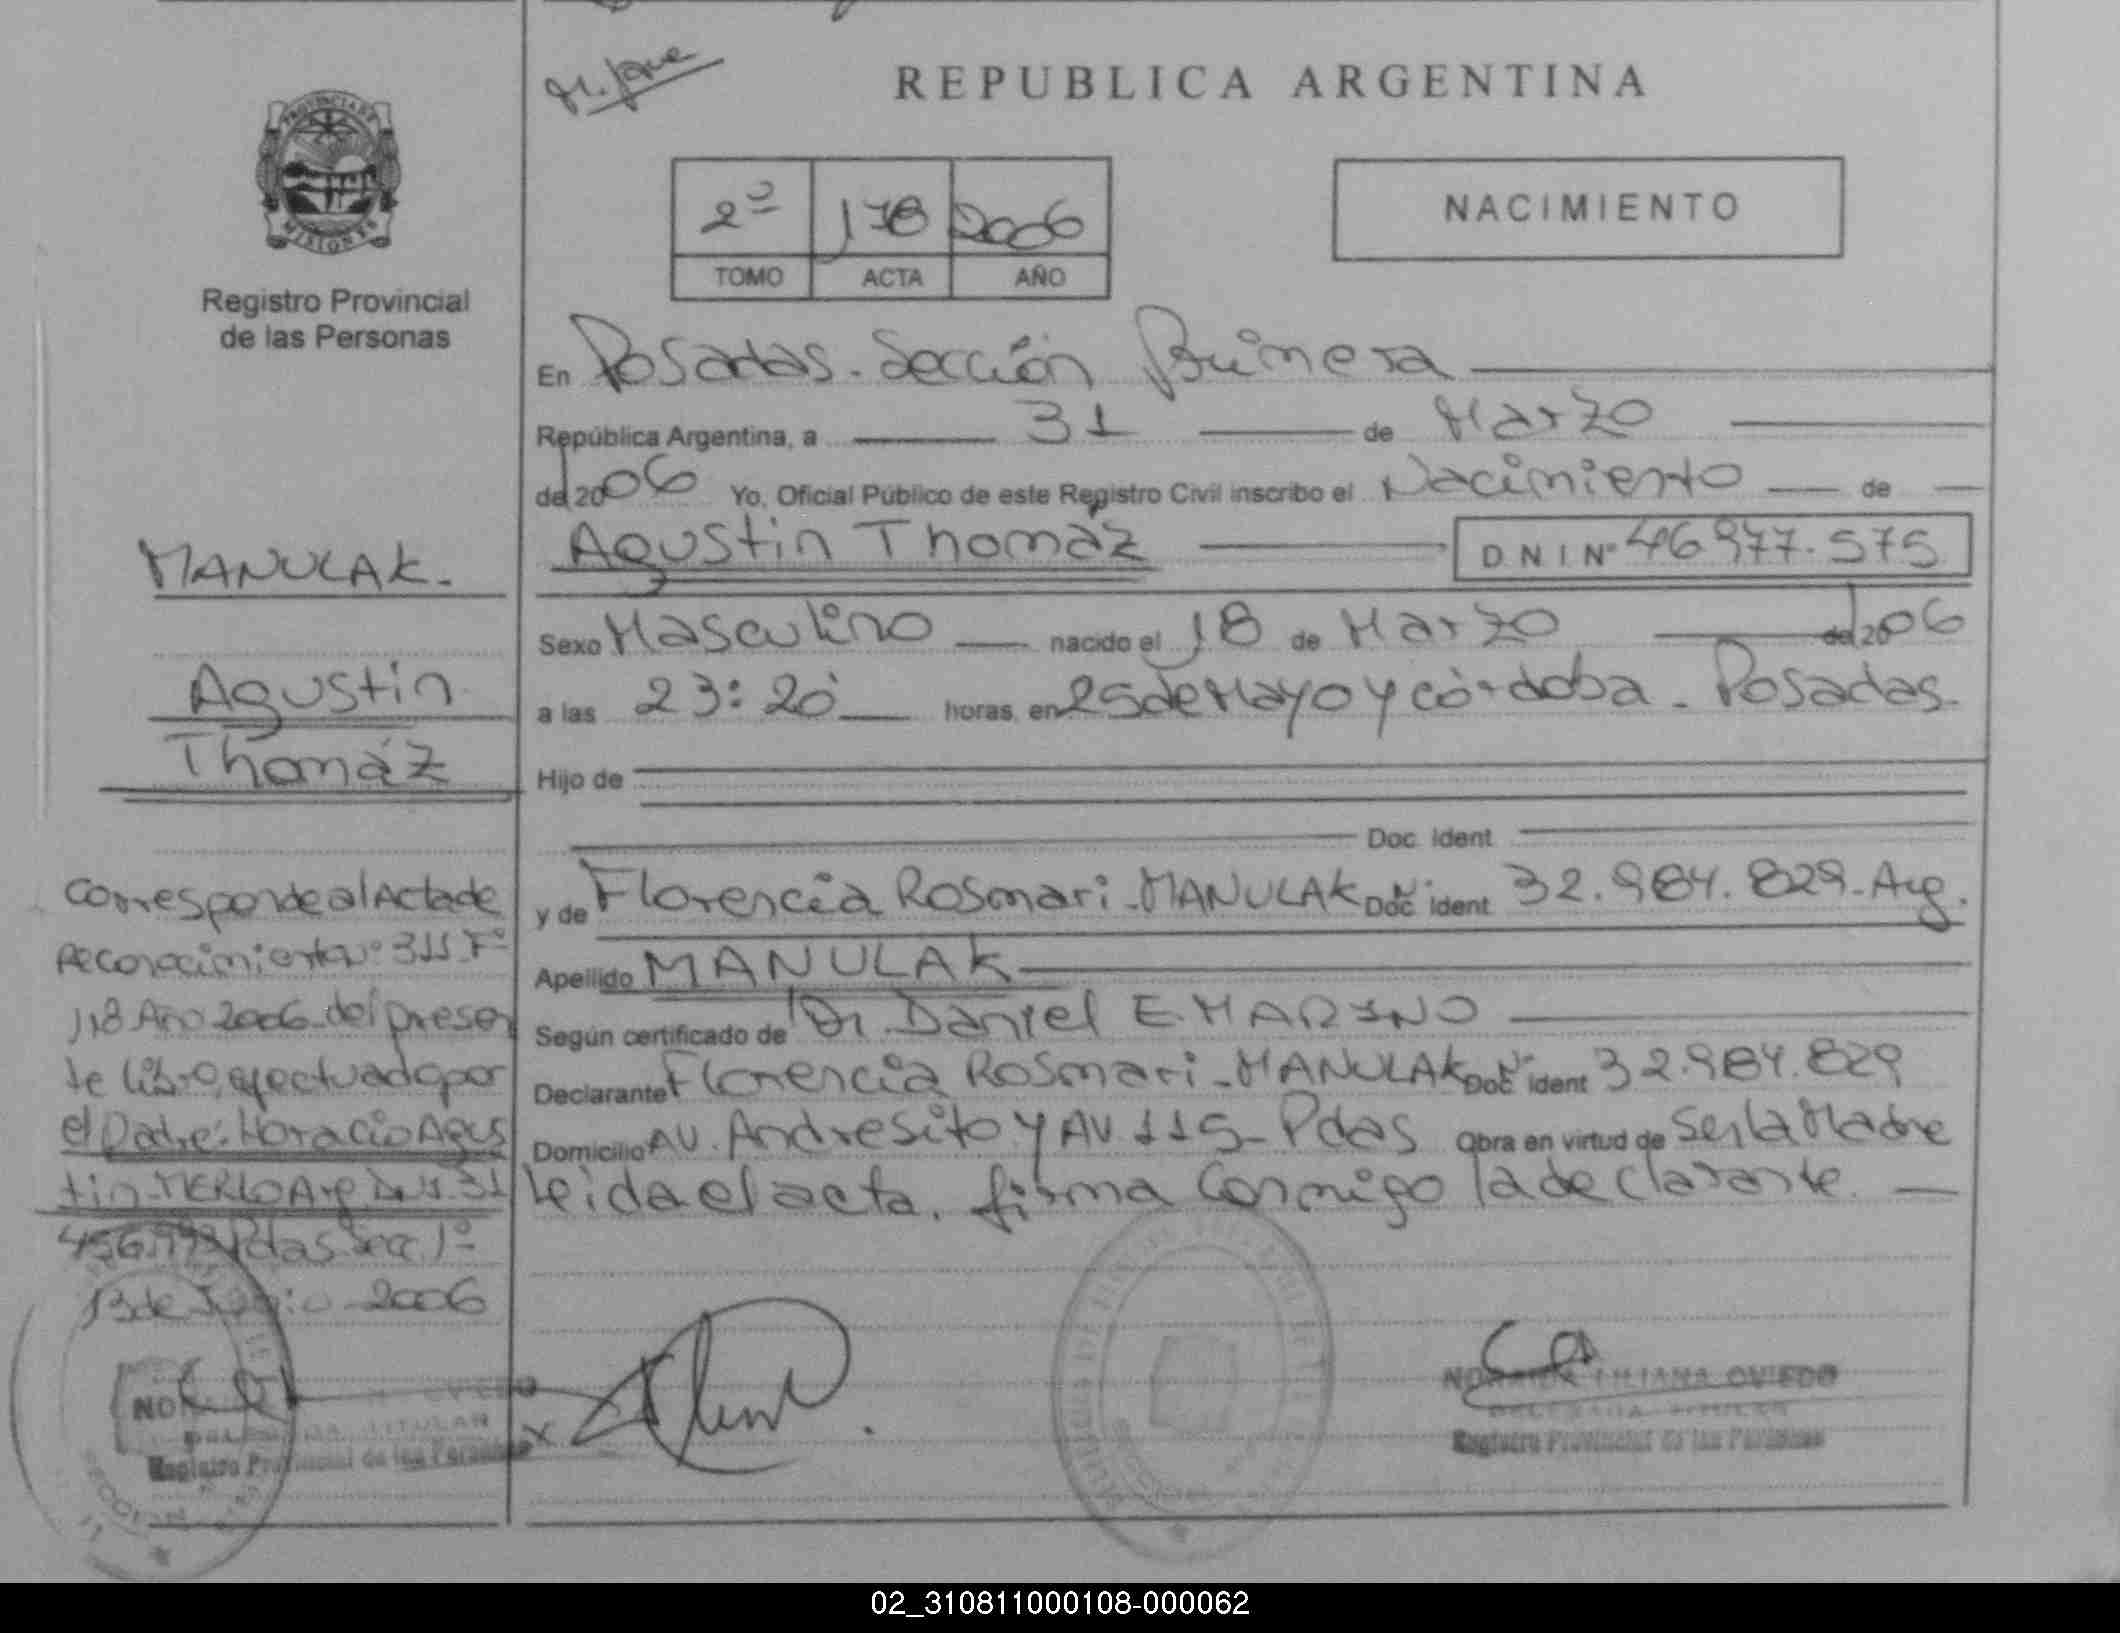 M. Jane
REPUBLICA ARGENTINA
PROVINCIA DE
MISIONES
Registro Provincial
de las Personas
2º 178 2006
TOMO ACTA AÑO
NACIMIENTO
En Posadas. Sección Primera
República Argentina, a 31 de Marzo
del 2006 Yo, Oficial Público de este Registro Civil inscribo el Nacimiento de
Agustin Thomáz DNI Nº 46.977.575
Sexo Masculino nacido el 18 de Marzo del 2006
a las 23:20 horas, en 25 de Mayo y Córdoba - Posadas.
Hijo de
Doc. Ident
y de Florencia Rosmari - MANULAK Doc. Nº ident 32.984.829 - Arg.
Apellido MANULAK
Según certificado de Dr. Daniel E. MARINO
Declarante Florencia Rosmari - MANULAK Doc. Nº ident 32.984.829
Domicilio AV. Andresito y AV 115 - Pdas Obra en virtud de Ser la Madre
Leida el acta, firma Conmigo la declarante.
MANULAK.
Agustin
Thomáz
Corresponde al Acta de
Reconocimiento Nº 311 Fº
118 Año 2006 del presen
te libro, efectuado por
el Padre: Horacio Agus
tin - MERLO Arg. DNI. 31
Pdas Secc 1º
13 de 2006
OVIEDO
DELEGADA TITULAR
Registro Provincial de las Personas
LILIANA OVIEDO
DELEGADA TITULAR
Registro Provincial de las Personas
02_310811000108-000062